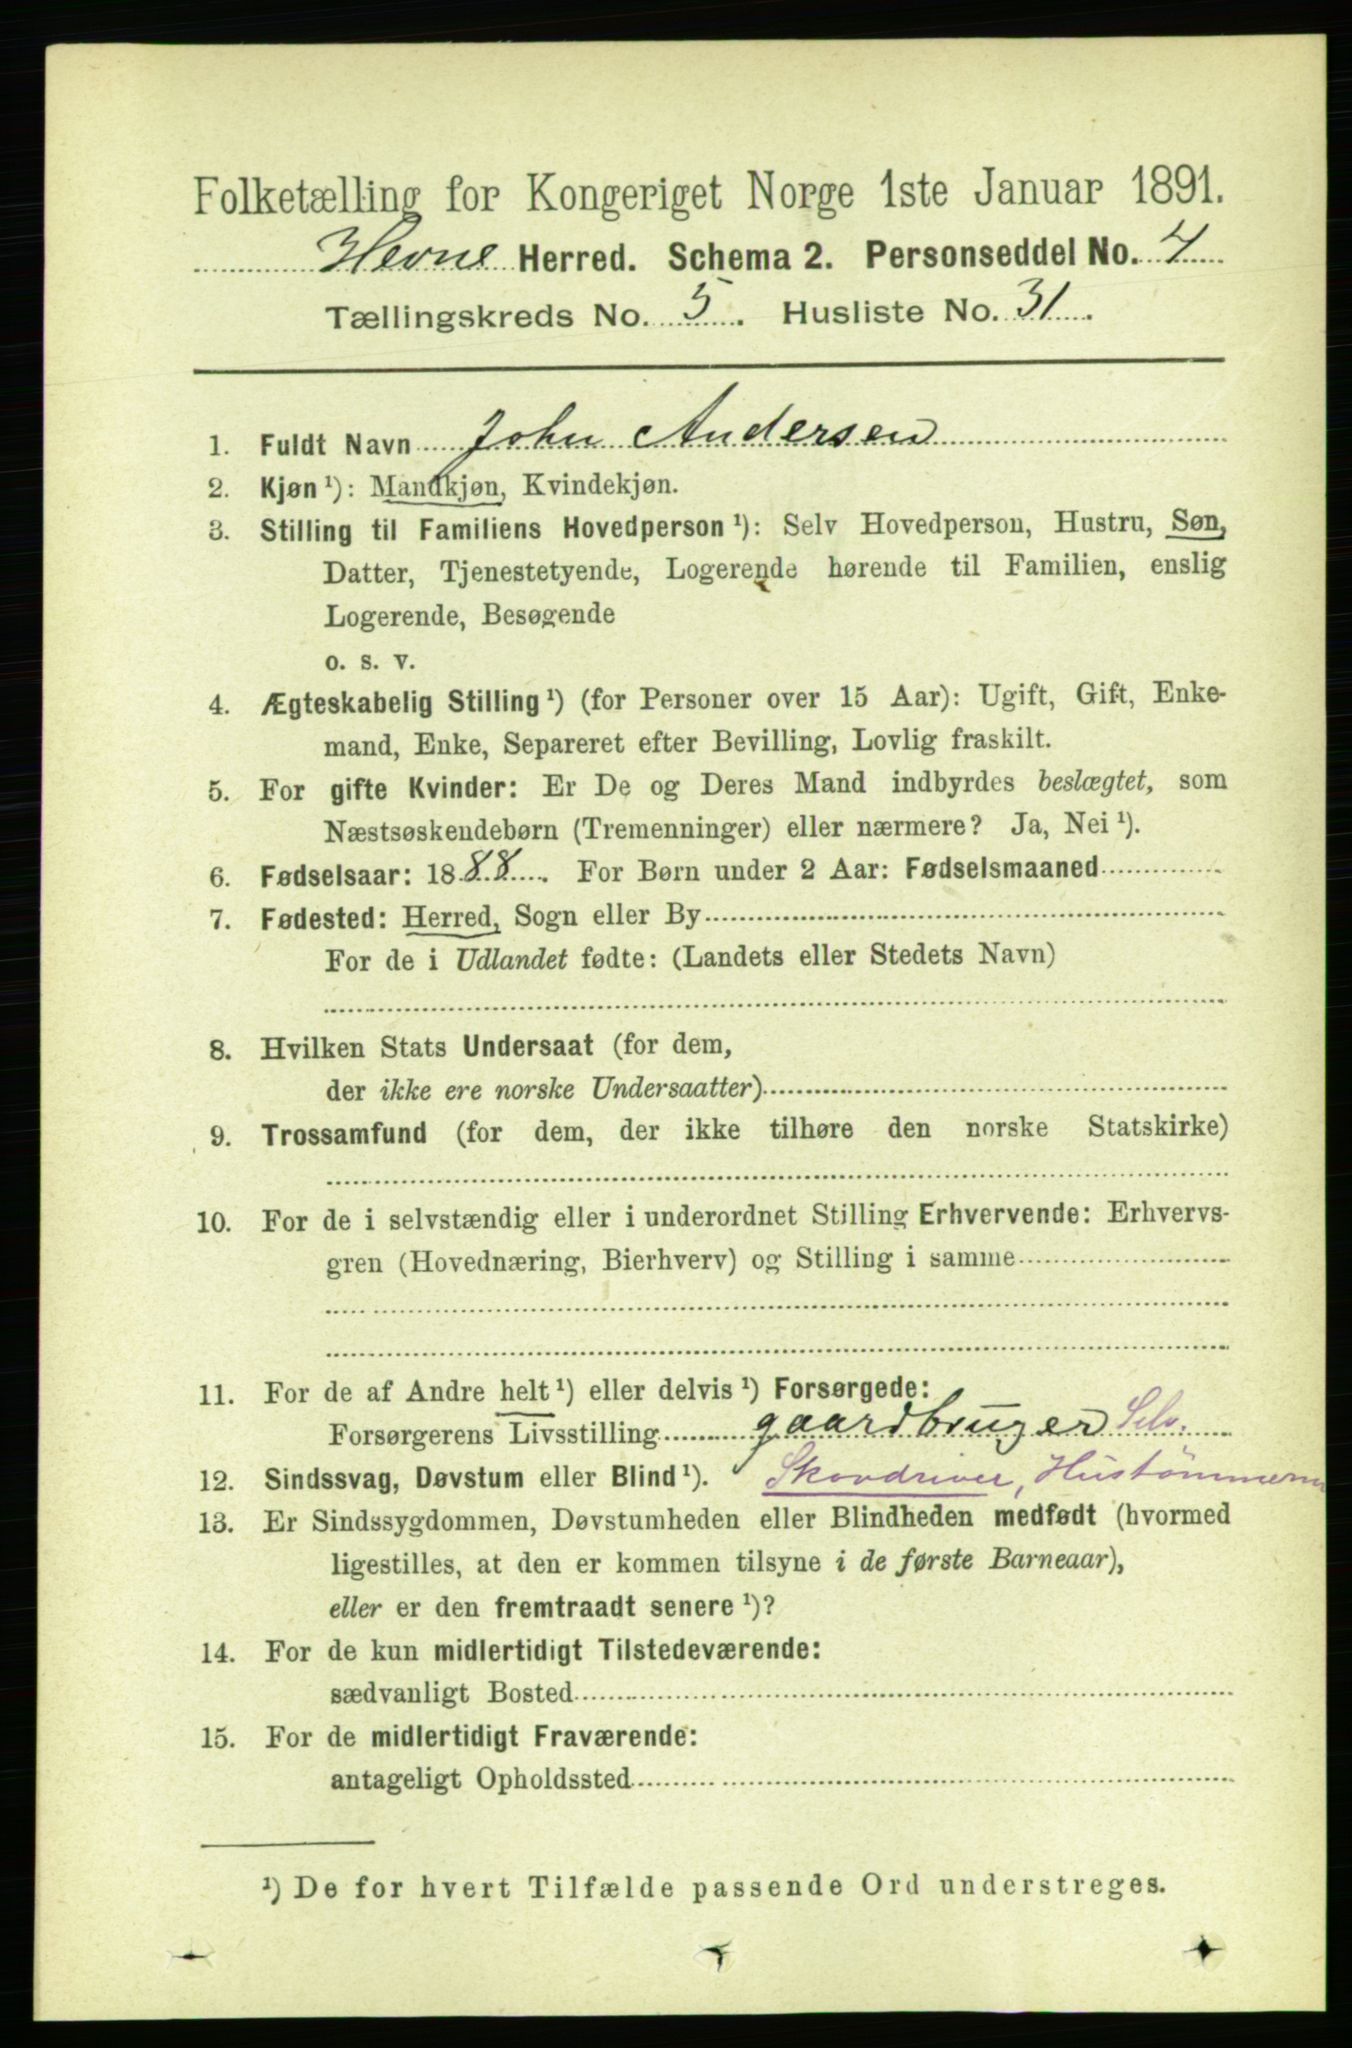 Folketælling for Kongeriget Norge 1ste Januar 1891.
Hevne Herred. Schema 2. Personseddel No. 4
Tællingskreds No. 5. Husliste No. 31.
1. Fuldt Navn John Andersen
2. Kjøn¹): Mandkjøn, Kvindekjøn.
3. Stilling til Familiens Hovedperson¹): Selv Hovedperson, Hustru, Søn,
Datter, Tjenestetyende, Logerende hørende til Familien, enslig
Logerende, Besøgende
o. s. v.
4. Ægteskabelig Stilling¹) (for Personer over 15 Aar): Ugift, Gift, Enke-
mand, Enke, Separeret efter Bevilling, Lovlig fraskilt.
5. For gifte Kvinder: Er De og Deres Mand indbyrdes beslægtet, som
Næstsøskendebørn (Tremenninger) eller nærmere? Ja, Nei¹).
6. Fødselsaar: 1888. For Børn under 2 Aar: Fødselsmaaned
7. Fødested: Herred, Sogn eller By
For de i Udlandet fødte: (Landets eller Stedets Navn)
8. Hvilken Stats Undersaat (for dem,
der ikke ere norske Undersaatter)
9. Trossamfund (for dem, der ikke tilhøre den norske Statskirke)
10. For de i selvstændig eller i underordnet Stilling Erhvervende: Erhvervs-
gren (Hovednæring, Bierhverv) og Stilling i samme
11. For de af Andre helt¹) eller delvis¹) Forsørgede:
Forsørgerens Livsstilling gaardbruger Selv.
12. Sindssvag, Døvstum eller Blind¹). Skovdriver, Hustømmerm
13. Er Sindssygdommen, Døvstumheden eller Blindheden medfødt (hvormed
ligestilles, at den er kommen tilsyne i de første Barneaar),
eller er den fremtraadt senere¹)?
14. For de kun midlertidigt Tilstedeværende:
sædvanligt Bosted
15. For de midlertidigt Fraværende:
antageligt Opholdssted
¹) De for hvert Tilfælde passende Ord understreges.